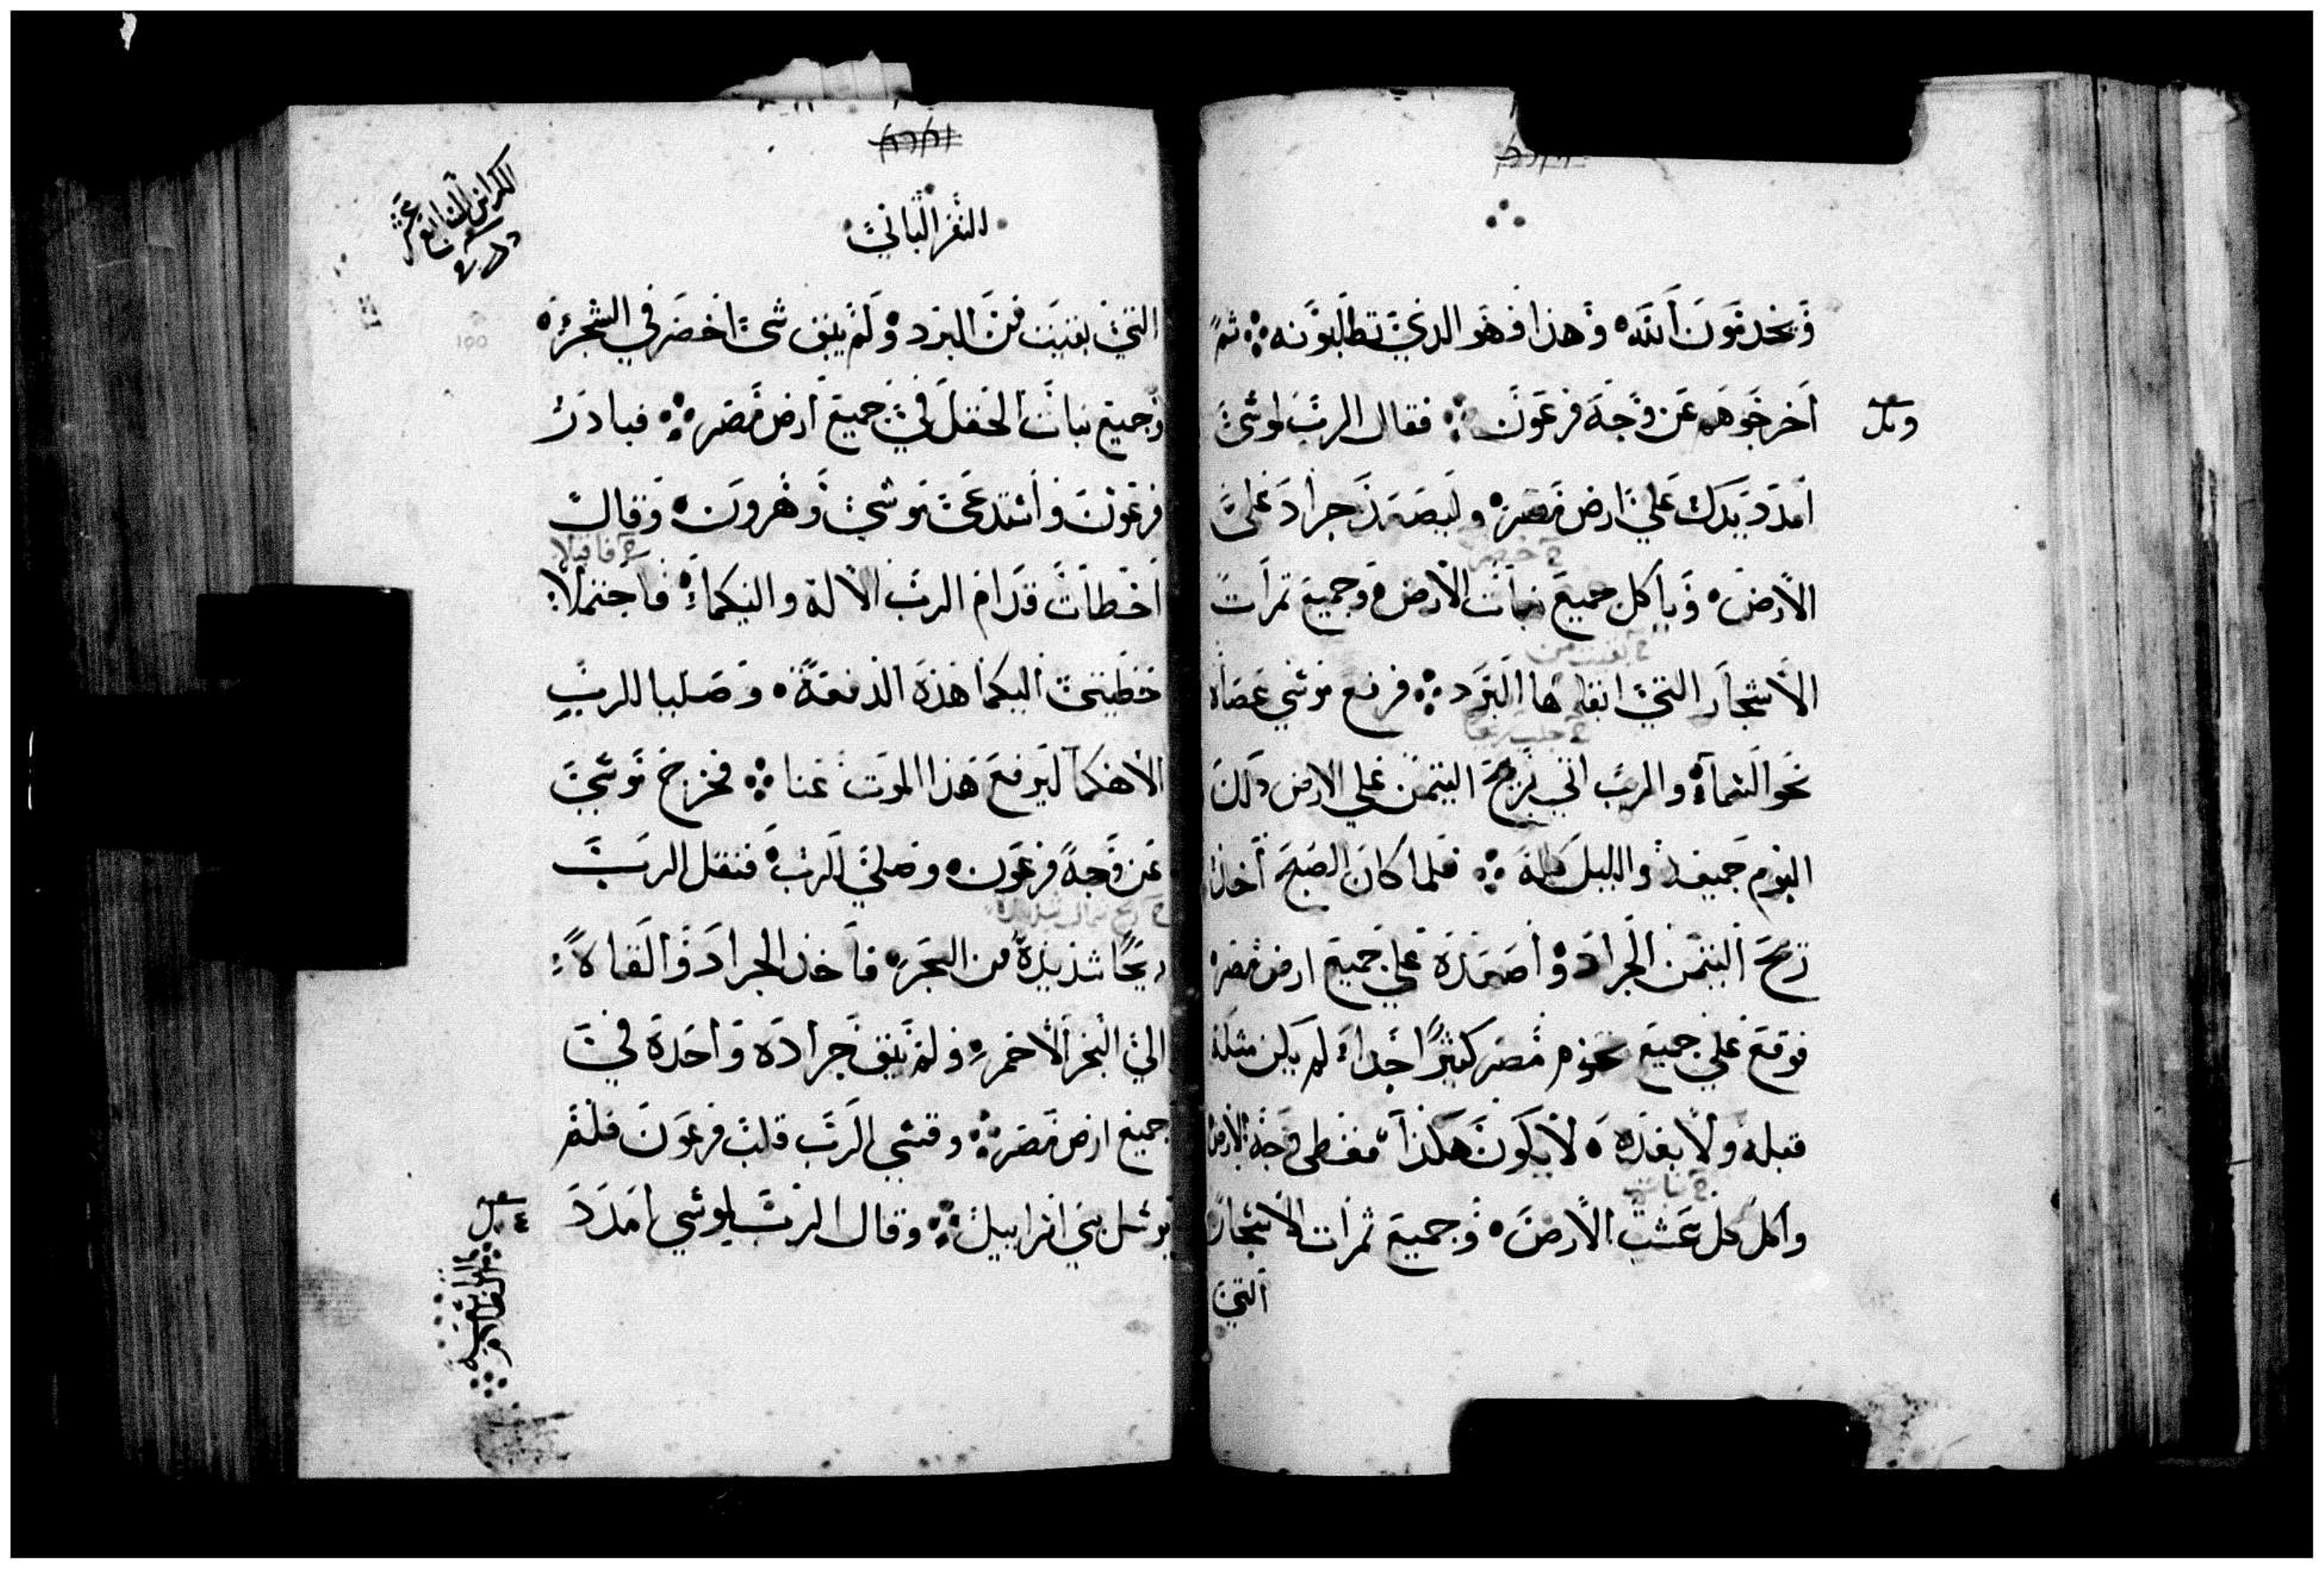 ويخدمون الله وهذا فهو الدي تطلبونه ثم
اخرجوهم عن وجه فرعون فقال الرب لموسى
امدد يدك علي ارض مصر وليصعد جراد على
الارض وياكل جميع نبات الارض وجميع ثمرات
الاشجار التي ابقاها البرد فرفع موسي عصاه
نحو السماء والرب اتي بريح التيمن علي الارض ذلك
اليوم جميعه والليل كله فلما كان الصبح اخذت
ريح التيمن الجراد واصعدة علي جميع ارض مصر
فوقع علي جميع تخوم مصر كثيرا جدا لم يكن مثله
قبله ولا بعده لا يكون هكذا فغطى وجه الارض
واكل كل عشب الارض وجميع ثمرات الاشجار
التي
السفر الثاني
التي بقيت من البرد ولم يبق شى اخضر في الشجر
وجميع نبات الحقل في جميع ارض مصر فبادر
فرعون واستدعى موسي وهرون وقال
اخطات قدام الرب الاله واليكما فاحتملا
خطيتي اليكما هذه الدفعة وصليا للرب
الاهكما ليرفع هذا الموت عنا فخرج موسي
عن وجه فرعون وصلي للرب فنقل الرب
ريحا شديدة من البحر فاخذ الجراد والقاه
الي البحر الاحمر ولم يبق جرادة واحدة في
جميع ارض مصر وقسي الرب قلب فرعون فلم
يرسل بني اسراييل وقال الرب لموسي امدد